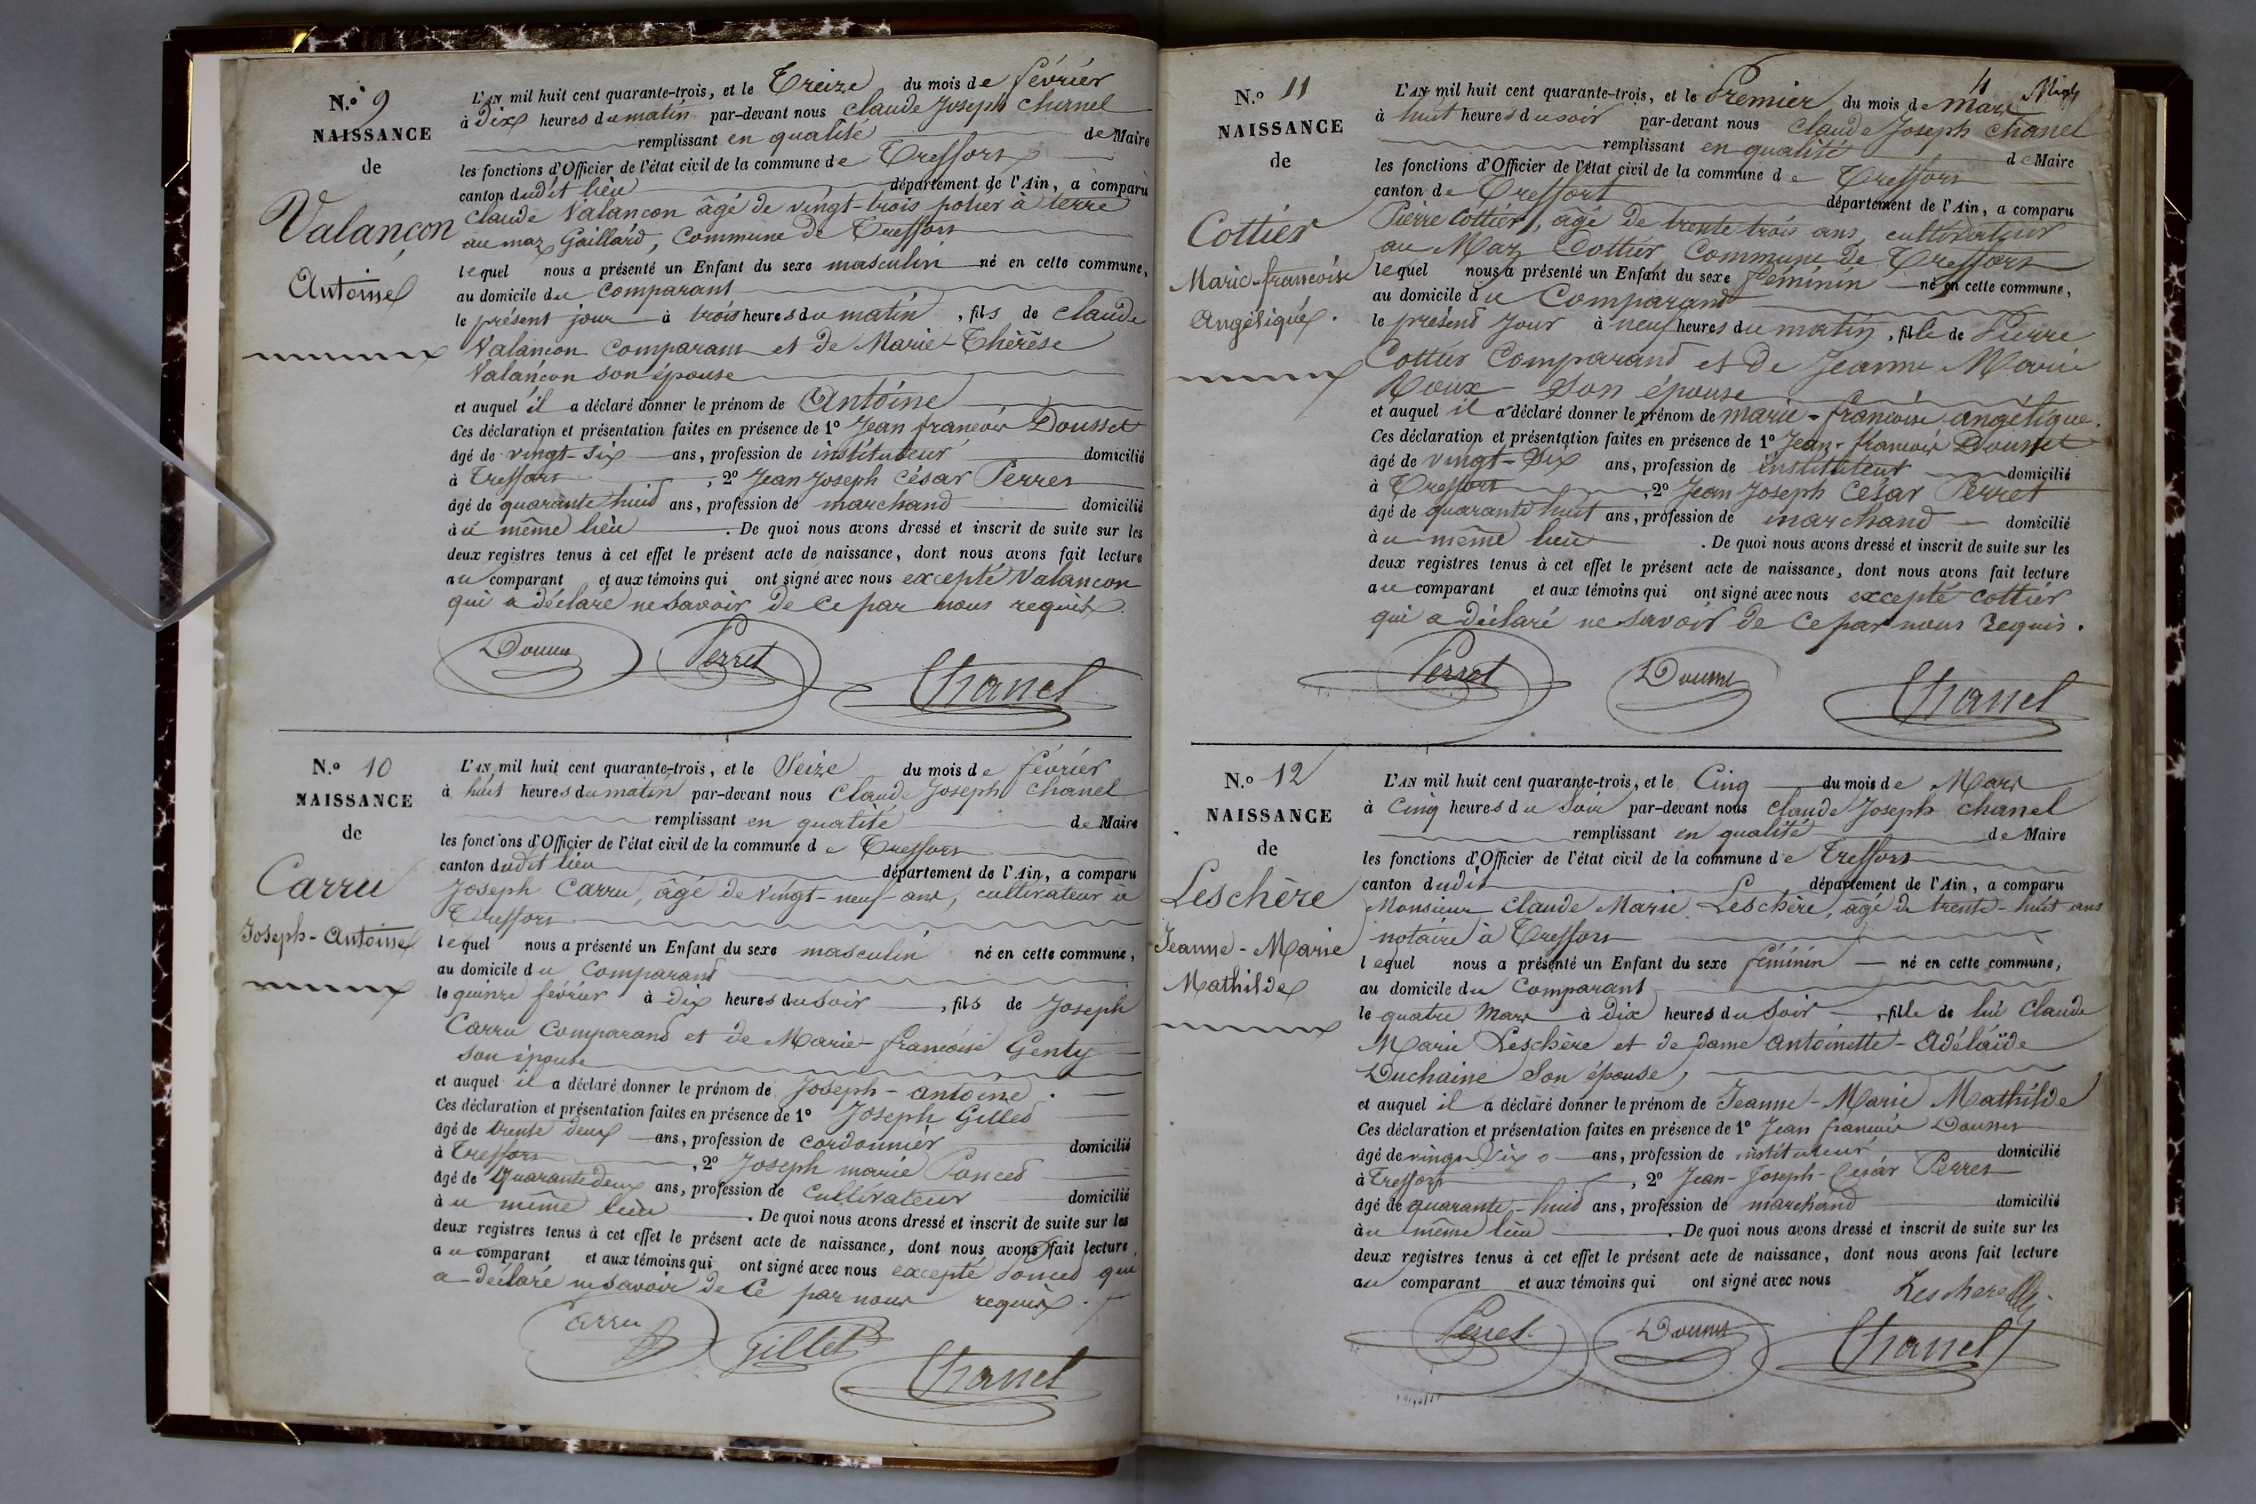 N.º 9
NAISSANCE
de
Valançon
Antoine
L'AN mil huit cent quarante-trois, et le Treize du mois de février
à dix heures du matin par-devant nous Claude Joseph Chanel
remplissant en qualité de Maire
les fonctions d'Officier de l'état civil de la commune de Treffort
canton dudit lieu département de l'Ain, a comparu
Claude Valancon âgé de vingt-trois potier à terre
au maz Gaillard, Commune de Treffort
lequel nous a présenté un Enfant du sexe masculin né en cette commune,
au domicile du Comparant
le présent jour à trois heures du matin, fils de Claude
Valancon Comparant et de Marie-Thérèse
Valançon son épouse
et auquel il a déclaré donner le prénom de Antoine
Ces déclaration et présentation faites en présence de 1º Jean françois Dousset
âgé de vingt-six ans, profession de instituteur domicilié
à Treffort, 2º Jean Joseph César Perret
âgé de quarante huit ans, profession de marchand domicilié
au même lieu. De quoi nous avons dressé et inscrit de suite sur les
deux registres tenus à cet effet le présent acte de naissance, dont nous avons fait lecture
au comparant et aux témoins qui ont signé avec nous excepté Valancon
qui a déclaré ne savoir de ce par nous requis.
Perret
Chanel
N.º 10
NAISSANCE
de
Carru
Joseph-Antoine
L'AN mil huit cent quarante-trois, et le Seize du mois de février
à huit heures du matin par-devant nous Claude Joseph Chanel
remplissant en qualité de Maire
les fonctions d'Officier de l'état civil de la commune de Treffort
canton dudit lieu département de l'Ain, a comparu
Joseph Carru, âgé de vingt-neuf ans, cultivateur à
Treffort
lequel nous a présenté un Enfant du sexe masculin né en cette commune,
au domicile du Comparant
le quinze février à dix heures du soir, fils de Joseph
Carru Comparant et de Marie-françoise Genty
son épouse
et auquel il a déclaré donner le prénom de Joseph-antoine.
Ces déclaration et présentation faites en présence de 1º Joseph Gillet
âgé de trente deux ans, profession de cordonnier domicilié
à Treffort, 2º Joseph marie Poncet
âgé de Quarante deux ans, profession de Cultivateur domicilié
au même lieu. De quoi nous avons dressé et inscrit de suite sur les
deux registres tenus à cet effet le présent acte de naissance, dont nous avons fait lecture
au comparant et aux témoins qui ont signé avec nous excepté Poncet qui
a déclaré ne savoir de Ce par nous requis.
Carru
Gillet
Chanel
4
N.º 11
NAISSANCE
de
Cottier
Marie-francoise
Angélique.
L'AN mil huit cent quarante-trois, et le Premier du mois de Mars
à huit heures du soir par-devant nous Claude Joseph Chanel
remplissant en qualité de Maire
les fonctions d'Officier de l'état civil de la commune de Treffort
canton de Treffort département de l'Ain, a comparu
Pierre Cottier, âgé de trente trois ans, cultivateur
au Maz Cottier Commune de Treffort
lequel nous a présenté un Enfant du sexe féminin né en cette commune,
au domicile du Comparant
le présent Jour à neuf heures du matin, fille de Pierre
Cottier Comparant et de Jeanne Marie
Roux son épouse
et auquel il a déclaré donner le prénom de marie-francoise angélique.
Ces déclaration et présentation faites en présence de 1º Jean-francois Dousset
âgé de vingt-Six ans, profession de instituteur domicilié
à Treffort, 2º Jean Joseph César Perret
âgé de quarante huit ans, profession de marchand domicilié
au même lieu. De quoi nous avons dressé et inscrit de suite sur les
deux registres tenus à cet effet le présent acte de naissance, dont nous avons fait lecture
au comparant et aux témoins qui ont signé avec nous excepté cottier
qui a déclaré ne savoir de Ce par nous requis.
Perret
Chanel
N.º 12
NAISSANCE
de
Leschère
Jeanne-Marie
Mathilde
L'AN mil huit cent quarante-trois, et le Cinq du mois de Mars
à Cinq heures du soir par-devant nous Claude Joseph Chanel
remplissant en qualité de Maire
les fonctions d'Officier de l'état civil de la commune de Treffort
canton dudit département de l'Ain, a comparu
Monsieur Claude Marie Leschère, âgé de trente-huit ans
notaire à Treffort
lequel nous a présenté un Enfant du sexe féminin né en cette commune,
au domicile du Comparant
le quatre Mars à Dix heures du Soir, fille de lui Claude
Marie Leschère et de dame Antoinette-Adélaïde
Duchaine Son épouse,
et auquel il a déclaré donner le prénom de Jeanne-Marie Mathilde
Ces déclaration et présentation faites en présence de 1º Jean francois Dousset
âgé de vingt Six ans, profession de instituteur domicilié
à Treffort, 2º Jean-Joseph-César Perret
âgé de quarante-huit ans, profession de marchand domicilié
au même lieu. De quoi nous avons dressé et inscrit de suite sur les
deux registres tenus à cet effet le présent acte de naissance, dont nous avons fait lecture
au comparant et aux témoins qui ont signé avec nous
Leschere
Perret
Chanel